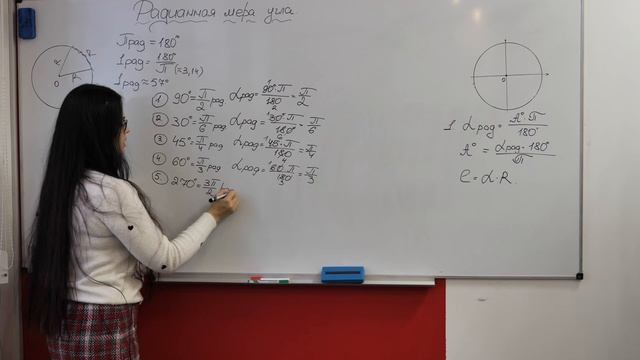 Радианная мера угла.
Прад = 180°
1рад = 180°/П (≈3,14)
1рад ≈ 57°
R
α
0
R
① 90° = П/2 рад αрад = 90°·П/180 2 = П/2
② 30° = П/6 рад αрад = 30°·П/180° 6 = П/6
③ 45° = П/4 рад αрад = 45·П/180 4 = П/4
④ 60° = П/3 рад αрад = 60·П/180° 3 = П/3
⑤ 270° = 3П/2
0
1. αрад = A°·П/180°
A° = αрад·180°/П
ℓ = α·R.